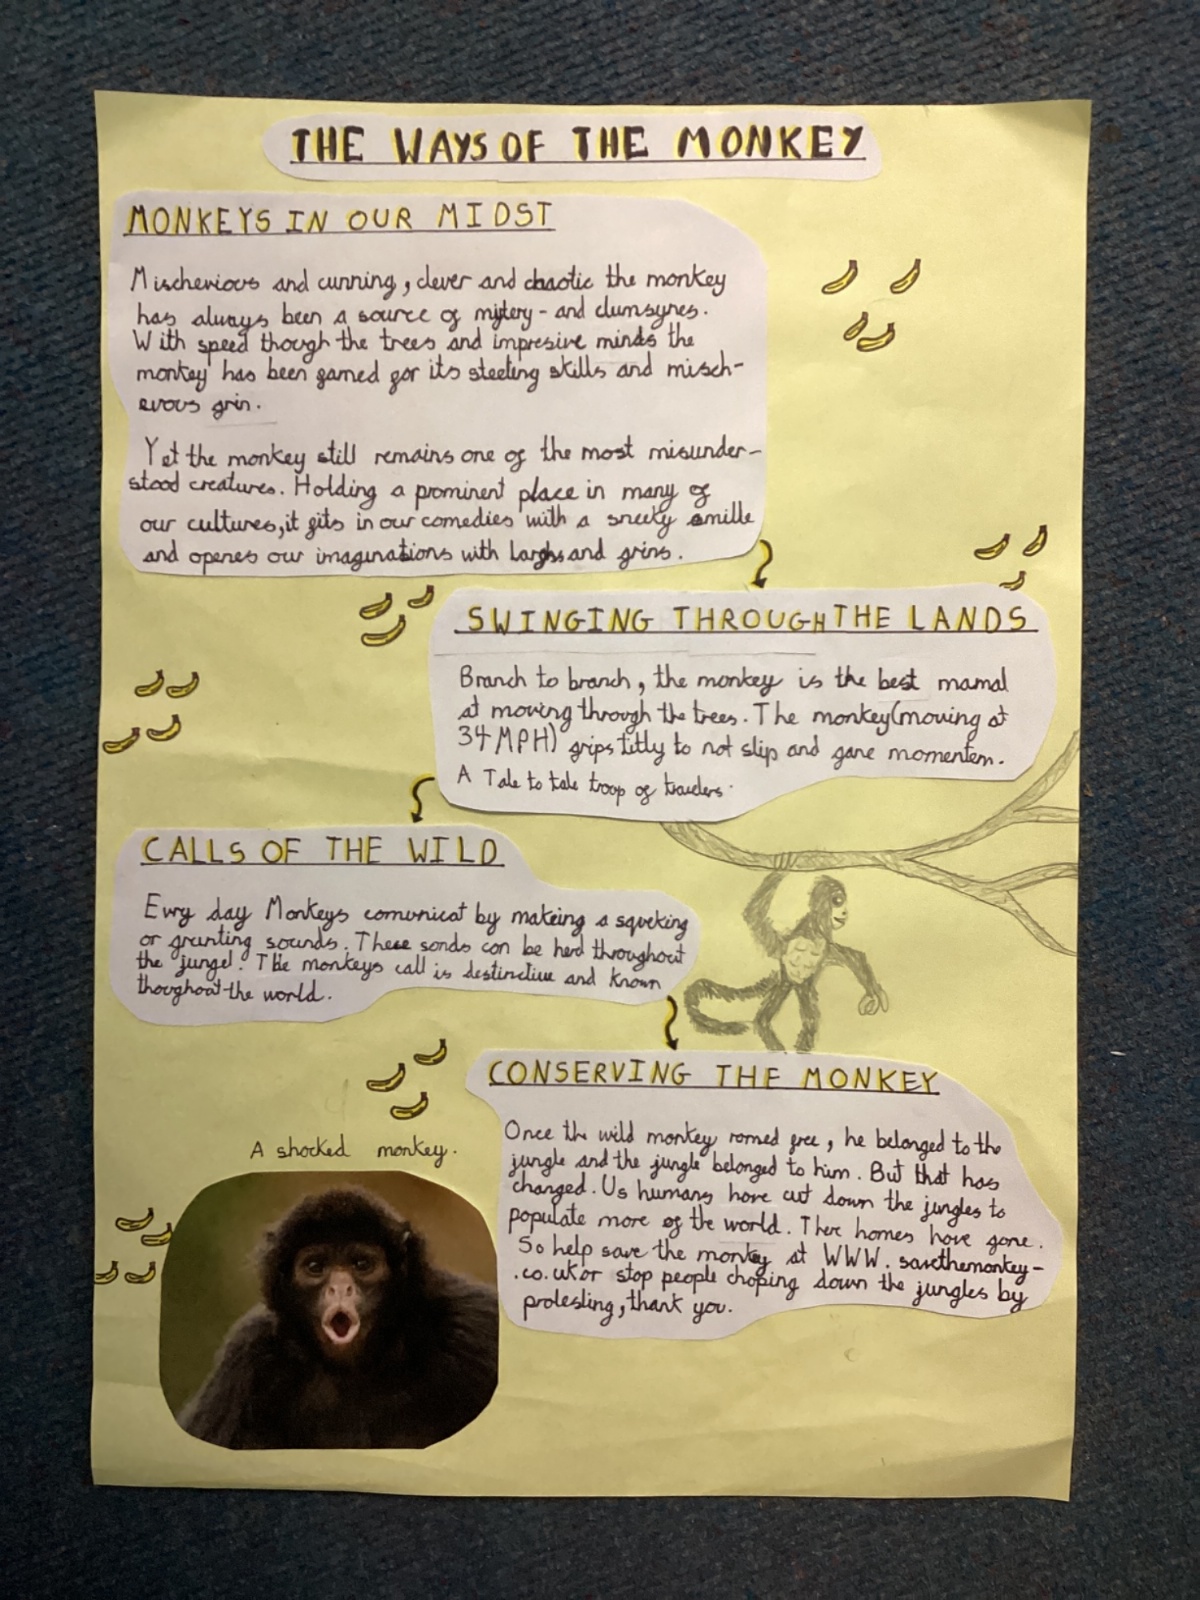 THE WAYS OF THE MONKEY
MONKEYS IN OUR MIDST
Mischevious and cunning, clever and chaotic the monkey
has always been a source of mystery - and clumsynes.
With speed though the trees and impresive minds the
monkey has been famed for its steeling skills and misch-
evous grin.
Yet the monkey still remains one of the most misunder-
stood creatures. Holding a prominent place in many of
our cultures, it fits in our comedies with a sneeky smille
and openes our imaginations with larghs and grins.
SWINGING THROUGH THE LANDS
Branch to branch, the monkey is the best mamal
at moving through the trees. The monkey (moving at
34 MPH) grips titly to not slip and gane momentem.
A Tale to tale troop of travelers.
CALLS OF THE WILD
Evry day Monkeys comunicat by makeing a sqweking
or grunting sounds. These sonds can be herd throughout
the jungel. The monkeys call is destinctive and known
thoughoat the world.
CONSERVING THE MONKEY
Once the wild monkey romed free, he belonged to the
jungle and the jungle belonged to him. But that has
changed. Us humans have cut down the jungles to
populate more of the world. There homes have gone.
So help save the monkey at WWW. savethemonkey-
.co.uk or stop people choping down the jungles by
protesting, thank you.
A shocked monkey.